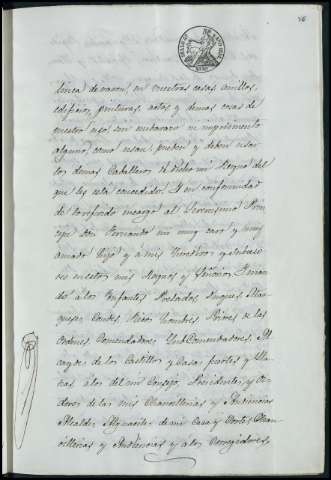 56
linea de varon, en vuestras casas, anillos,
edificios, pinturas, actos, y demas cosas de
vuestro uso, sin embarazo ni impedimento
alguno, como usan, pueden y deben usar
los demas Caballeros de dicho mi Reyno del
que les esta concedido. Y en conformidad
de lo referido encargo al Serenisimo Prin-
cipe Don Fernando mi muy caro y muy
amado Hijo y a mis
ses en estos mis Reynos y Señorios,
do a los Infantes Prelados Duques Mar-
queses Condes, Ricos hombres Priores de las
Ordenes Comendadores y SubComendadores, Al-
caydes de los Castillos y Casas fuertes y lla-
nas a los del mi Consejo, Presidentes y Oi-
dores de las mis Chancillerias y Audiencias
Alcaldes Alguaciles de mi Casa y Corte y Chan-
cillerias y Audiencias y a los Corregidores,